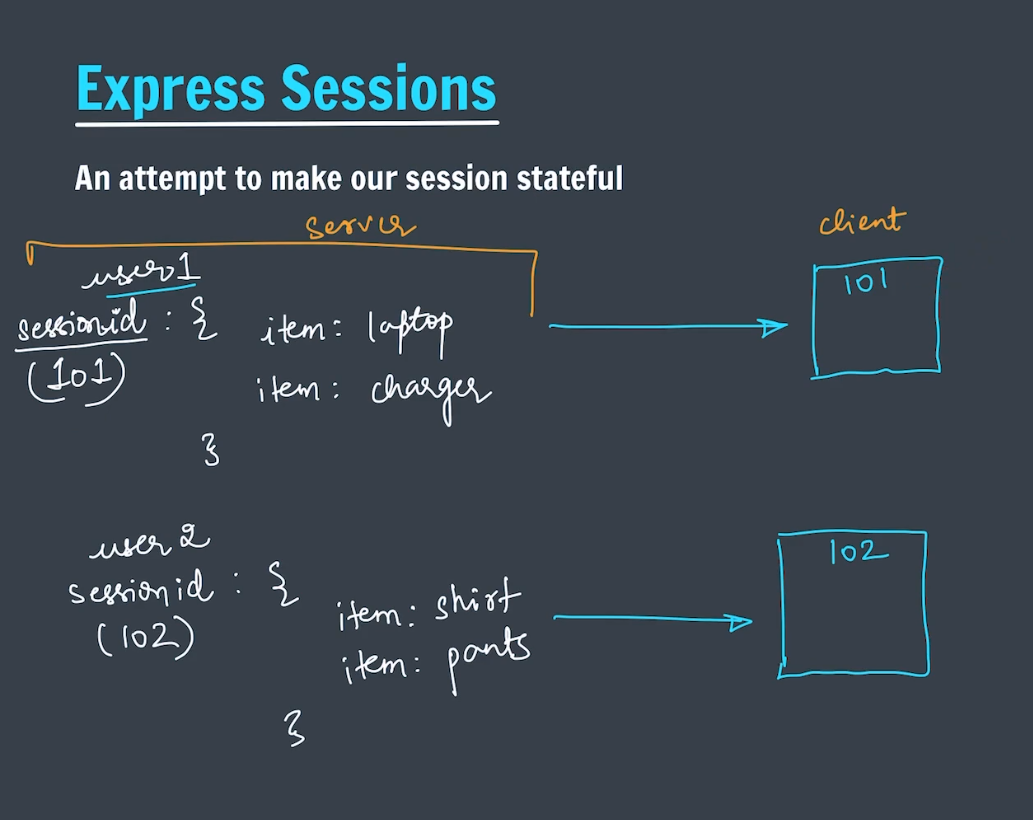 Express Sessions
An attempt to make our session stateful
server
client
user1
101
sessionid : {
item: laptop
(101)
item: charger
}
user 2
102
sessionid : {
item: shirt
(102)
item: pants
}